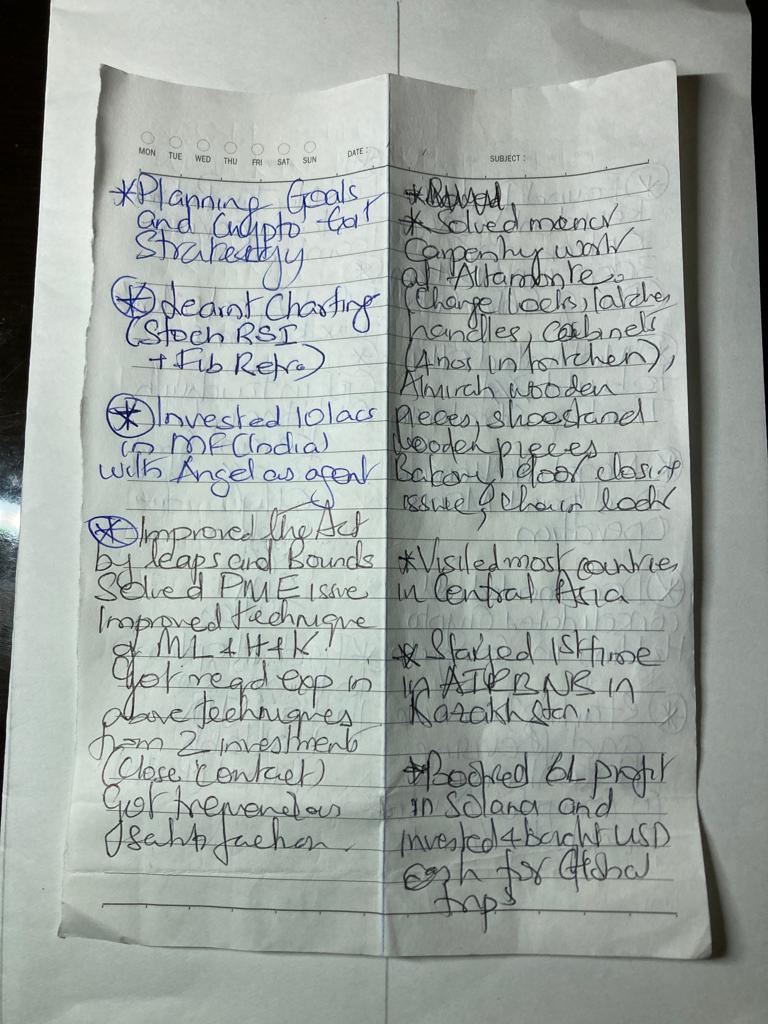 MON TUE WED THU FRI SAT SUN DATE :
*Planning Goals
and Crypto
Strategy
* Learnt Charting
(Stoch RSI
+ Fib Retra)
* Invested 10 lacs
in MF (India)
with Angel as agent
* Improved the Act
by leaps and Bounds
Solved PME issue
Improved technique
of ML + H + K
Got reqd exp in
above techniques
from 2 investment
(Close Contact)
Got tremendous
SUBJECT :
* Solved
Carpentry work
at Altamonte
(Change locks, latches,
handles, cabinets
(4 nos in kitchen),
Almirah wooden
pieces, shoestand
wooden pieces
door closing
issue, Chain lock
*Visited most countries
in Central Asia
* Stayed 1st time
in AIRBNB in
Kazakhstan.
*Booked 6L profit
in Solana and
invested + bought USD
cash for Global
trips